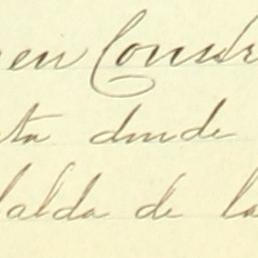 en Consu
ta donde
falda de la